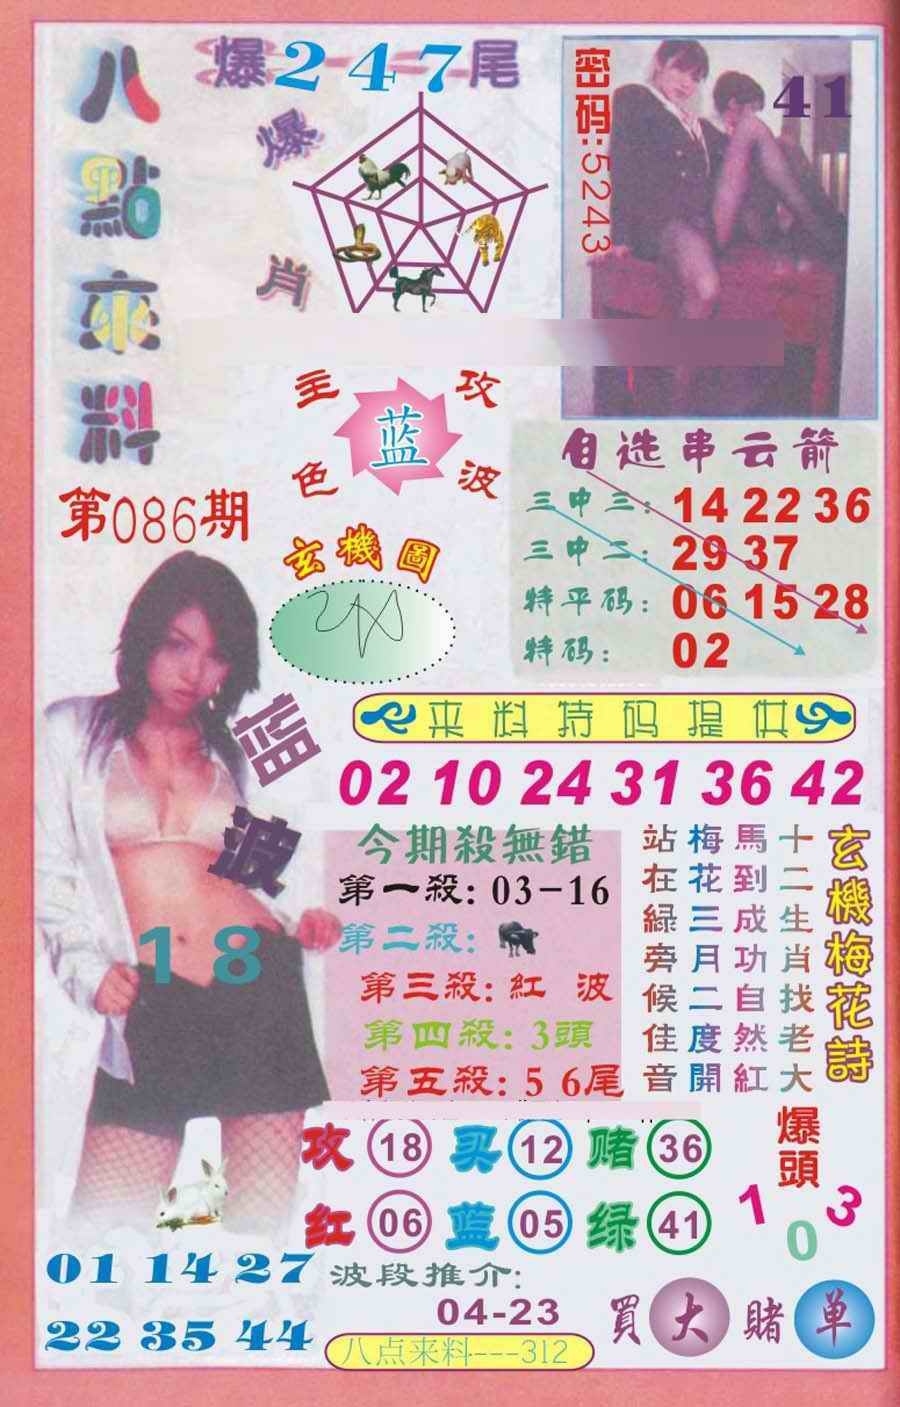 八點來料
爆247尾
爆肖
密码:5243
41
主攻
色波
蓝
第086期
玄機圖
自选串云箭
三中三:142236
三中二:2937
特平码:061528
特码:02
蓝波
18
来料特码提供
02 10 24 31 36 42
今期殺無錯
第一殺:03-16
第二殺:
第三殺:紅波
第四殺:3頭
第五殺:5 6尾
玄機梅花詩
十二生肖找老大
馬到成功自然紅
梅花三月二度開
站在綠旁候佳音
攻 18 买 12 赌 36
红 06 蓝 05 绿 41
爆頭
1 0 3
01 14 27
22 35 44
波段推介:
04-23
八点来料---312
買大賭单